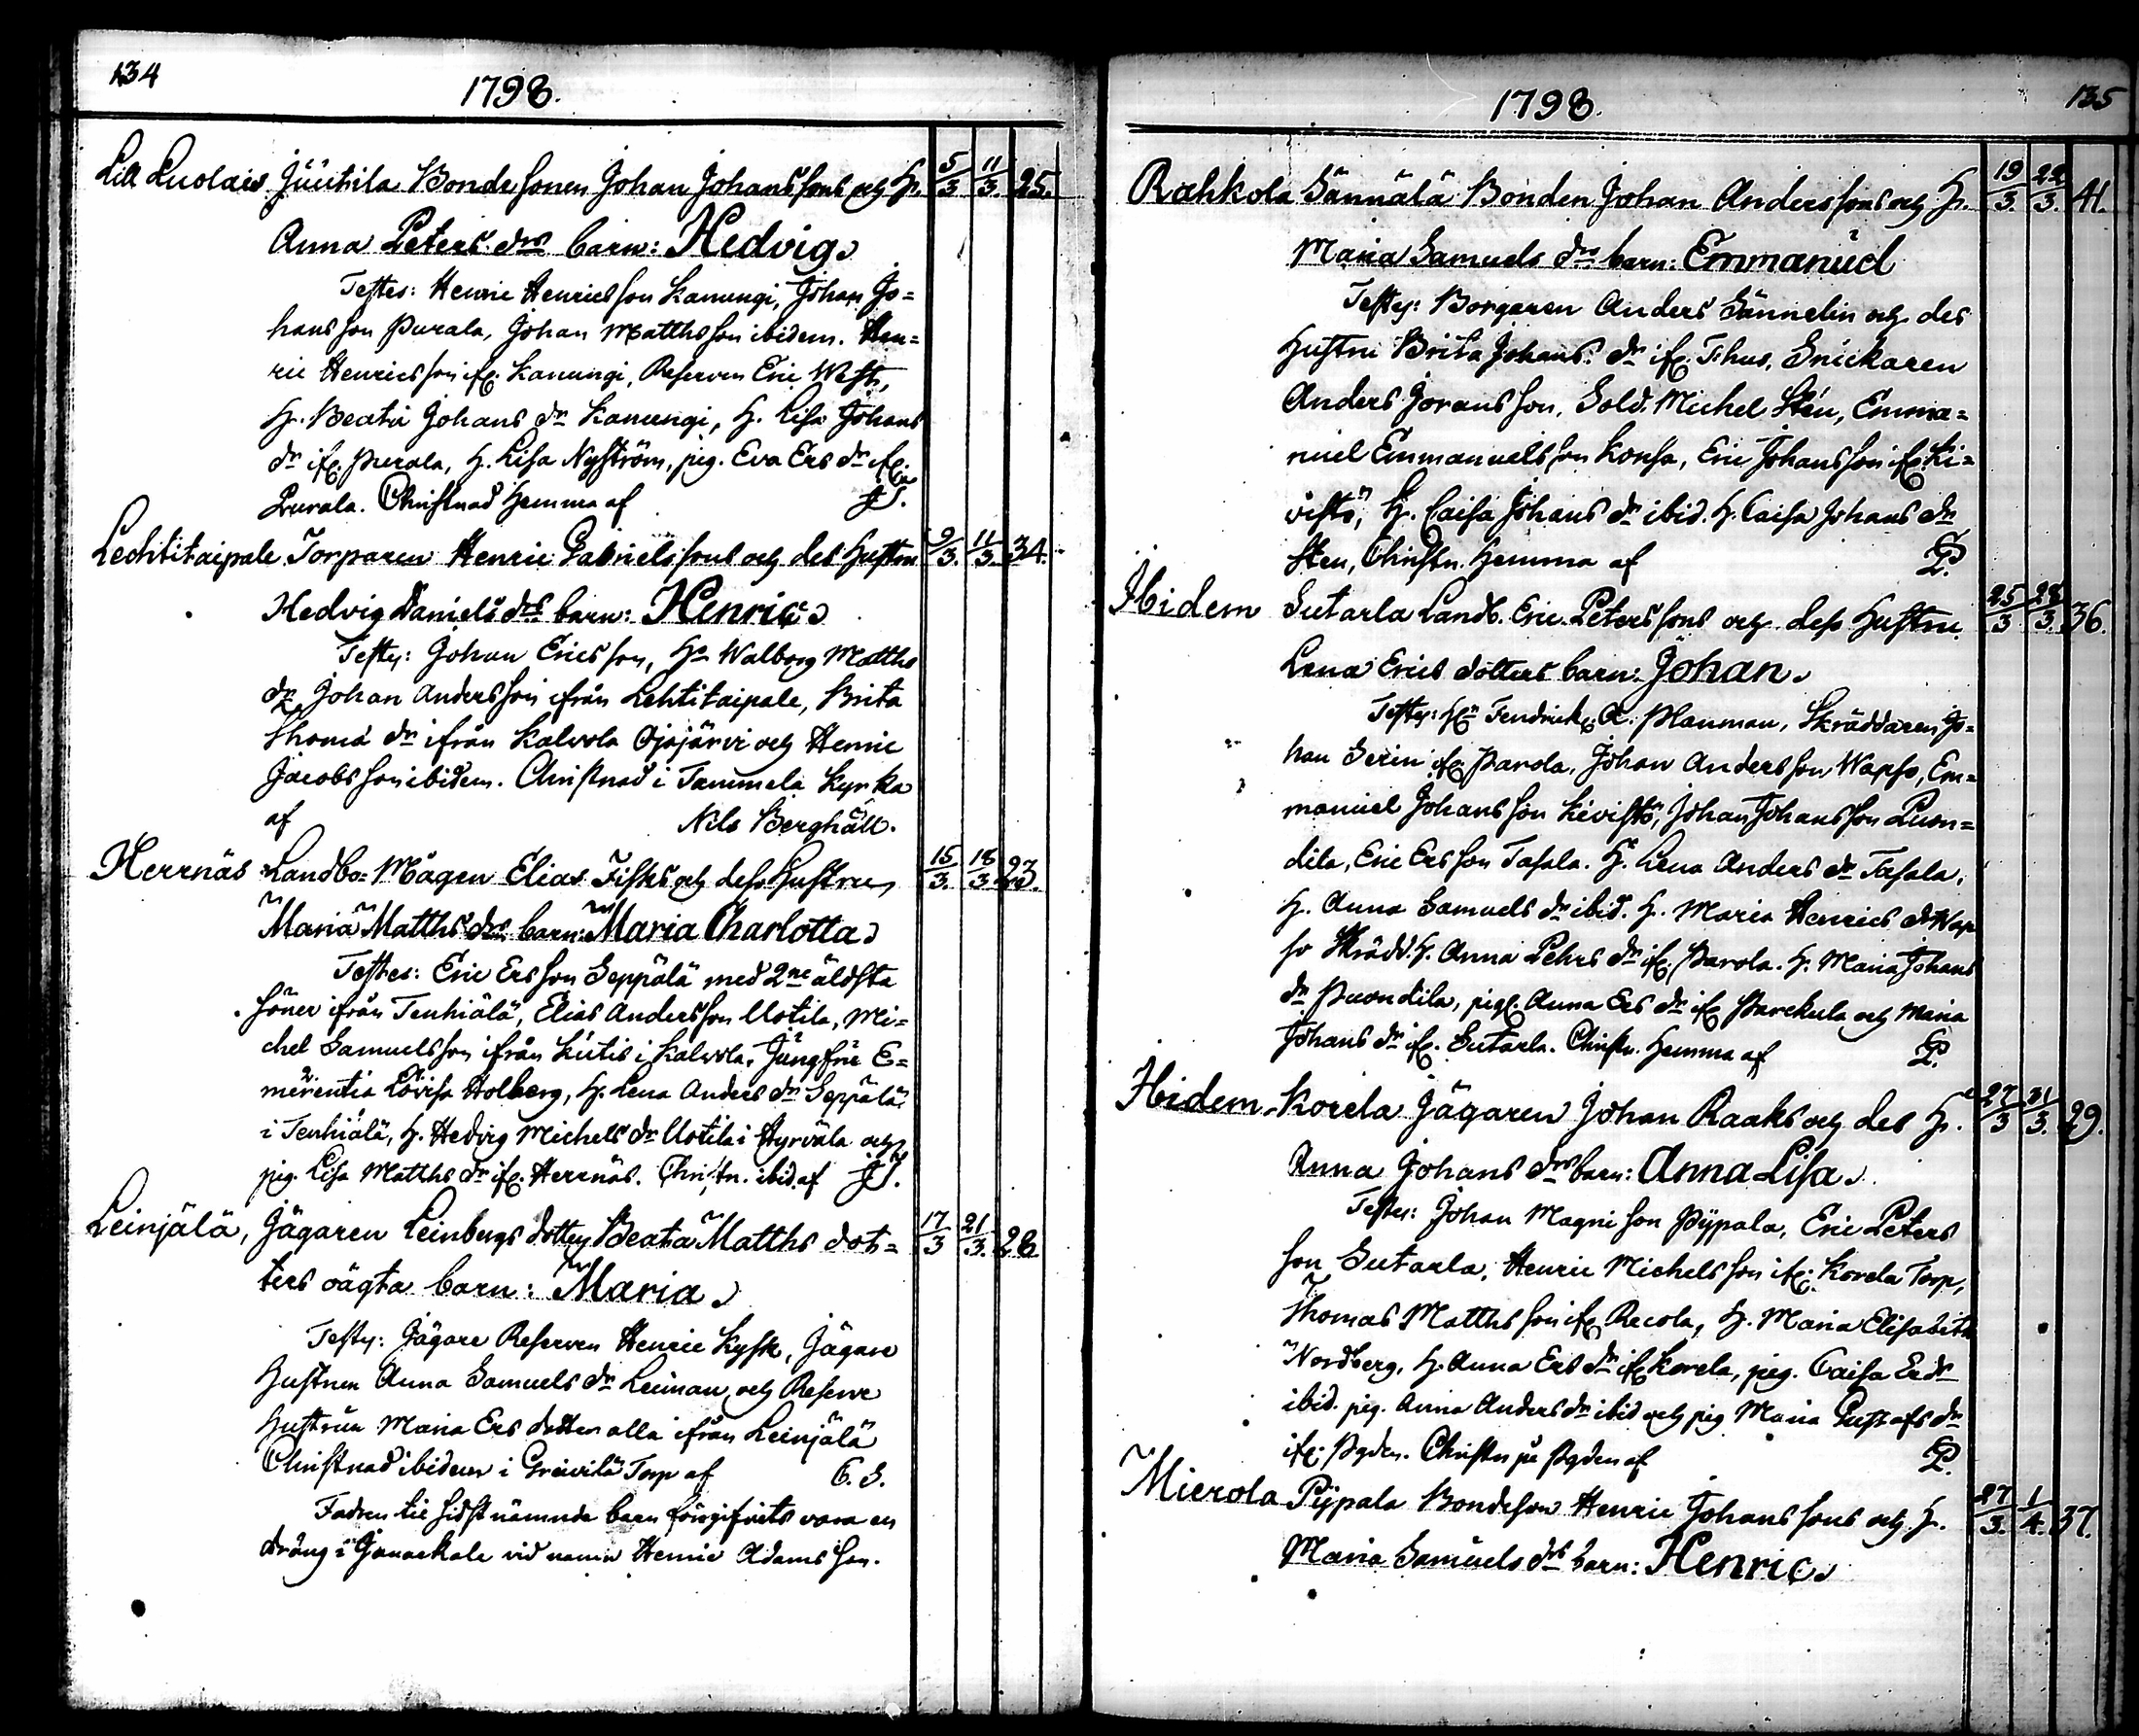 134
1798.
Lill Luolais Juutila Bonde sonen Johan Johanssons och H. 5/3 11/3. 25.
Anna Peters drs barn: Hedvig.
Testes: Henric Henricsson Kanungi, Johan Jo=
hansson Purala, Johan Matthsson ibidem. Hen=
ric Henricsson ifr. Kanungi, Reserven Eric West,
H. Beata Johans dr Kanungi, H. Lisa Johans
dr ifr. Purala, H. Lisa Nyström, pig. Eva Ers dr ifr.
Purala. Christnad hemma af
Lechtitaipale Torparen Henric Gabrielssons och des hustru 9/3. 11/3. 34.
Hedvig Daniels drs barn: Henric
Testes: Johan Ericsson, Hu Walborg Matths
dr Johan Andersson ifrån Lehtitaipale, Brita
Thomæ dr ifrån Kalvola Ojajärvi och Henric
Jacobsson ibidem. Christnad i Tammela kyrka
af Nils Berghäll.
Herrnäs Landbo=Mågen Elias Fisks och dess hustrus 15/3. 18/3 23.
Maria Matths drs barn: Maria Charlotta
Testes: Eric Ersson Seppälä med 2ne äldsta
söner ifrån Tenhiälä, Elias Andersson Uotila, Mi=
chel Samuelsson ifrån Kutis i Kalvola, Jungfru E=
merentia Lovisa Holberg, H. Lena Anders dr Seppälä
i Tenhiälä, H. Hedvig Michels dr Uotila i Hyrvälä och
pig. Lisa Matths dr ifr. Herrnäs. Christn. ibid. af
Leinjälä, Jägaren Leinbergs dotters Beata Matths dot= 17/3 21/3. 28
ters oägta barn: Maria
Testes: Jägare Reserven Henric Kysk, Jägare
Hustrun Anna Samuels dr Leiman, och Reserve
hustrun Maria Ers dotter alla ifrån Leinjälä
Christnad ibidem i Torp af C. S.
Fadren till sidstnämnde barn föregifvits vara en
dräng i Janackala vid namn Henric Adamsson.
1798.
135
Rahkola Sännälä Bonden Johan Anderssons och H. 19/3. 22/3. 41.
Maria Samuels drs barn: Emmanuel
Testes: Borgaren Anders Sännelin och des
hustru Brita Johans dr ifr. T:hus, Snickaren
Anders Joransson, Sold. Michel Sten, Emma=
nuel Emmanuelsson Konsa, Eric Johansson ifr. Ki=
vistö, H. Caisa Johans dr ibid. H. Caisa Johans dr
Sten, Christn. hemma af
Ibidem Sutarla Landb. Eric Peterssons och dess hustru 25/3 28/3. 36.
Lena Erics dotters barn: Johan.
Testes: Hr Fendrick A: Planman, Skräddaren Jo=
han Serin ifr Parola, Johan Andersson Wapso, Em=
manuel Johansson Kivistö, Johan Johansson Puon=
dila, Eric Ersson Tasala. H. Lena Anders dr Tasala,
H. Anna Samuels dr ibid. H. Maria Henrics dr Wap
so Skrädd. H. Anna Pehrs dr ifr. Parola. H. Maria Johans
dr Puondila, pig. Anna Ers dr ifr Parckula och Maria
Johans dr ifr. Sutarla. Christn. hemma af
Ibidem Korela Jägaren Johan Raaks och des H. 27/3 31/3. 29.
Anna Johans drs barn: Anna Lisa.
Testes: Johan Magnison Pijpala, Eric Peters
son Sutarla, Henric Michelsson ifr. Korela Torp,
Thomas Matthsson ifr Recola, H. Maria Elisabeth
Nordberg, H. Anna Ers dr ifr Korela, pig. Caisa Er dr
ibid. pig. Anna Anders dr ibid och pig Maria Gustafs dr
ifr. Pyden. Christn på Pyden af
Mierola Pijpala Bondeson Henric Johanssons och H. 27/3. 1/4. 37.
Maria Samuels drs barn: Henric